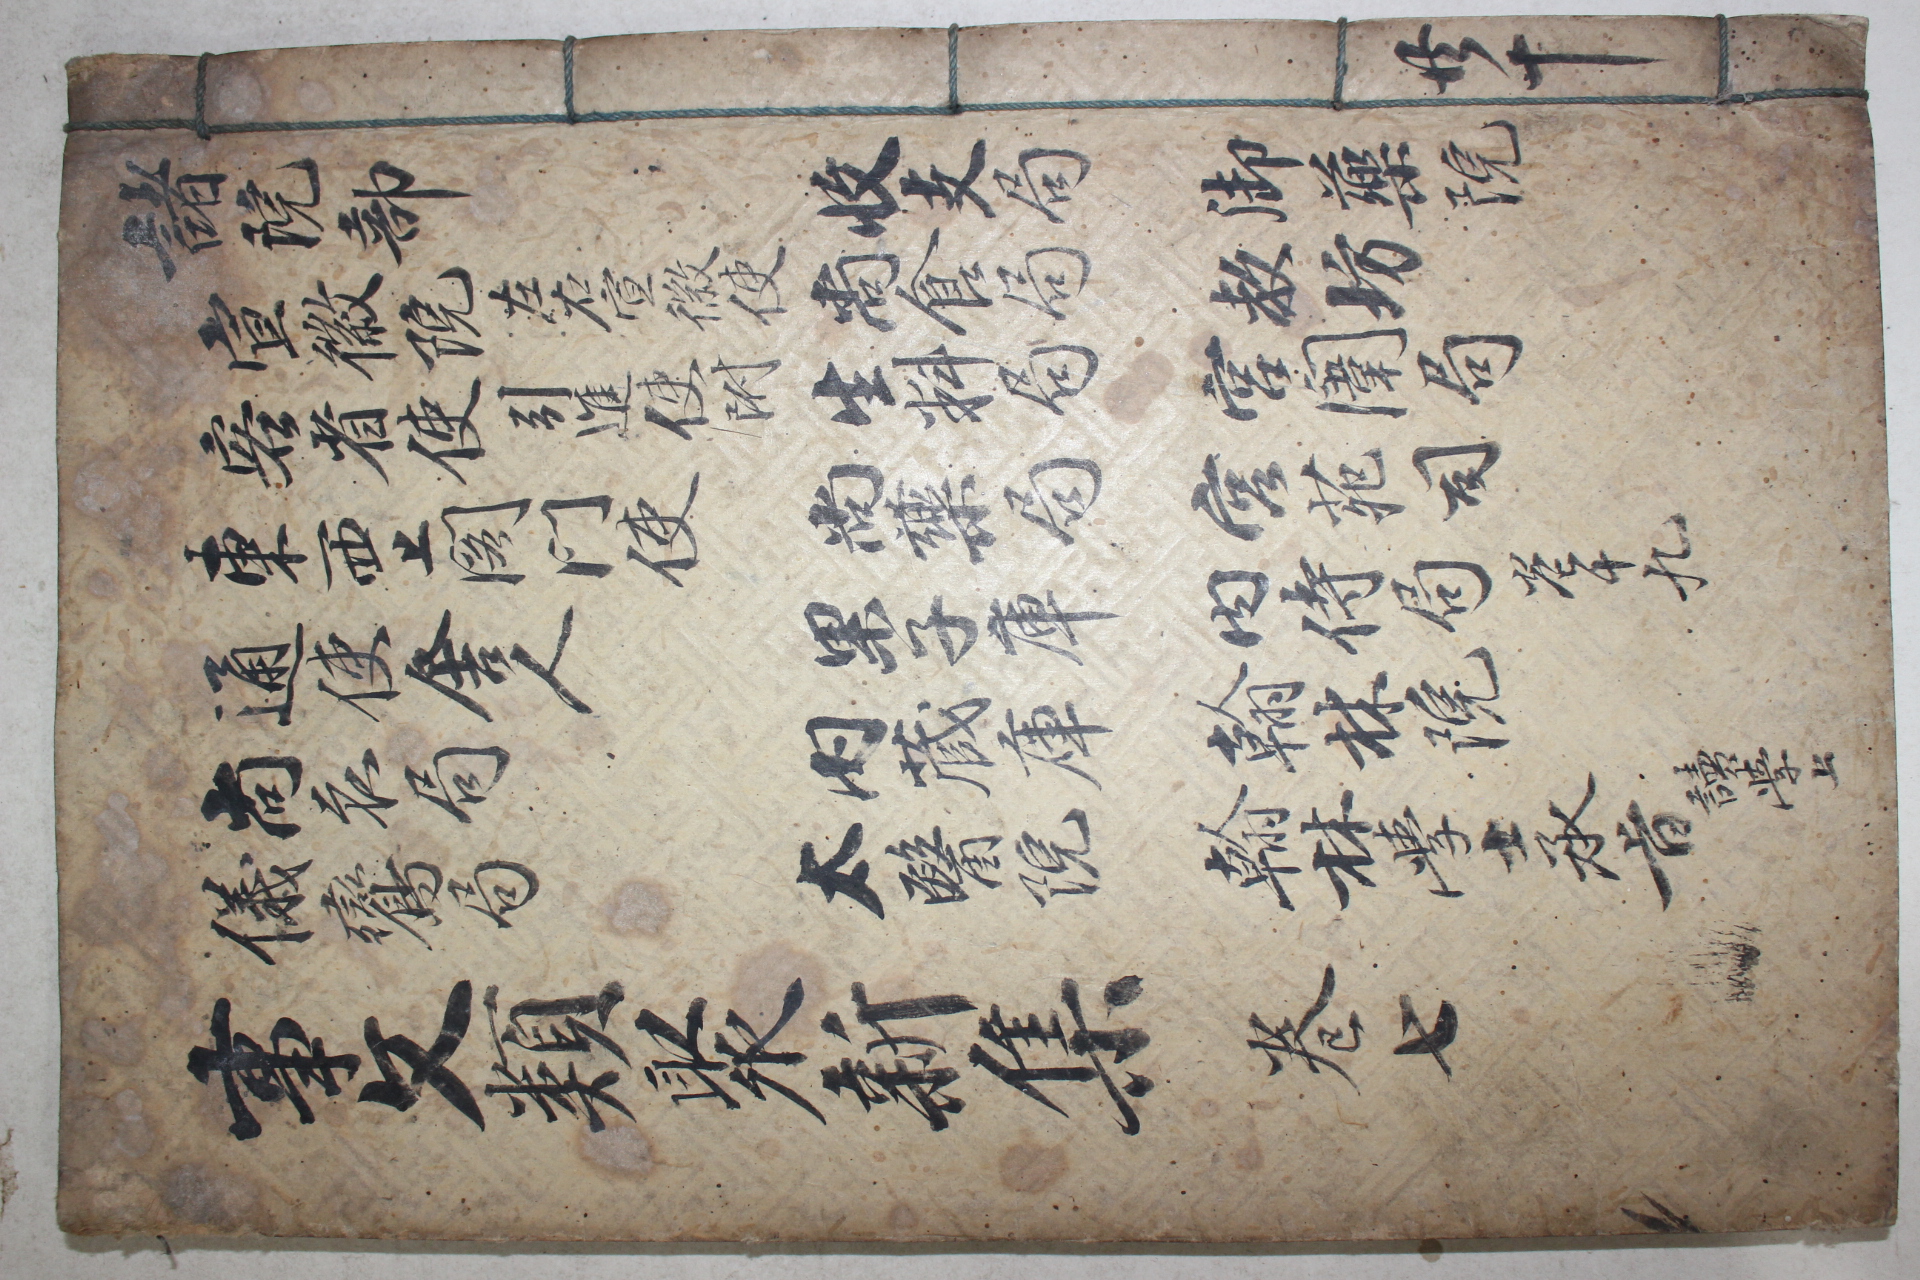 共十
諸院部
宣徽院
左右宣徽使
客省使
引進使附
東西上閤門使
通使舍人
尚衣局
儀鸞局
收支局
尚食局
生料局
尚藥局
果子庫
内藏庫
太醫院
御藥院
教坊
宮闈局
宮苑司
内侍局
翰林院
翰林學士承旨
讀學士
事文類聚新集 卷七